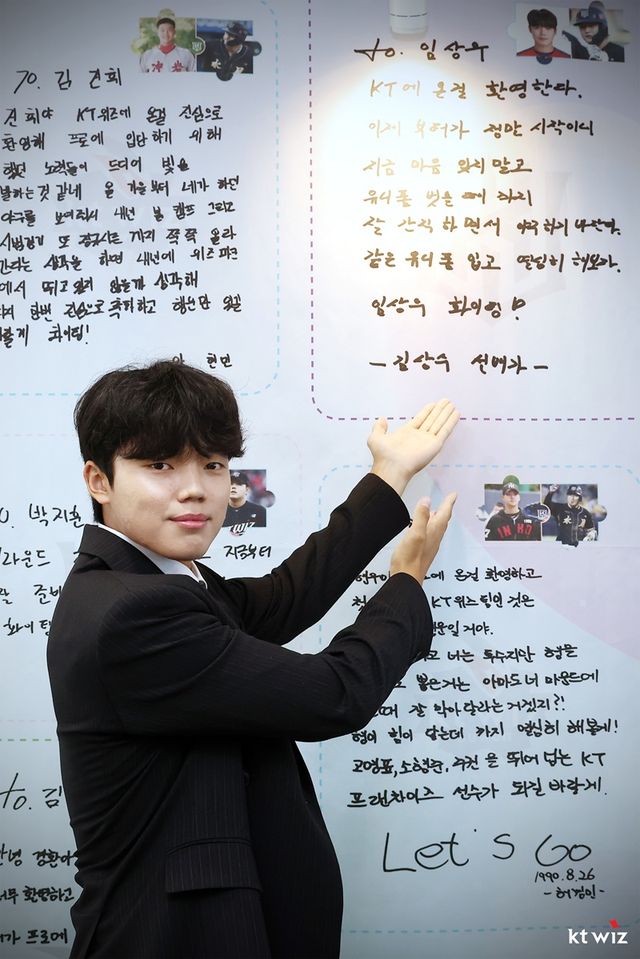 TO. 김 건희
건희야 KT위즈에 온걸 진심으로
환영해 프로에 입단하기 위해
했던 노력들이 드디어 빛을
발하는것 같네 올 가을부터 네가 하던
야구를 보여줘서 내년 봄 캠프 그리고
시범경기 또 정규시즌 까지 쭉 쭉 올라
간다는 생각을 하면 내년에 위즈파크
에서 뛰고 있지 않을까 생각해
다시 한번 진심으로 축하하고 행운만 있길
바랄게 화이팅!
안 현민
to. 임상우
KT에 온걸 환영한다.
이제 부터가 정말 시작이니
지금 마음 잊지 말고
유니폼 벗을 때 까지
잘 간직하면서 야구하기 바란다.
같은 유니폼 입고 열심히 해보자.
임상우 화이팅!
-김상수 선배가-
박지훈
라운드 지금부터
화이팅
온걸 환영하고
KT위즈 팀인 것은
분일 거야.
너는 투수지만 형을
뽑은거는 아마도 너 마운드에
때 잘 막아달라는 거겠지?!
형이 힘이 닿는데 까지 열심히 해볼게!
고영표,소형준,주권 을 뛰어 넘는 KT
프랜차이즈 선수가 되길 바랄게.
Let's Go
1990.8.26
-허경민-
to. 김
안녕 경환아
너무 환영하고
가 프로에
kt wiz